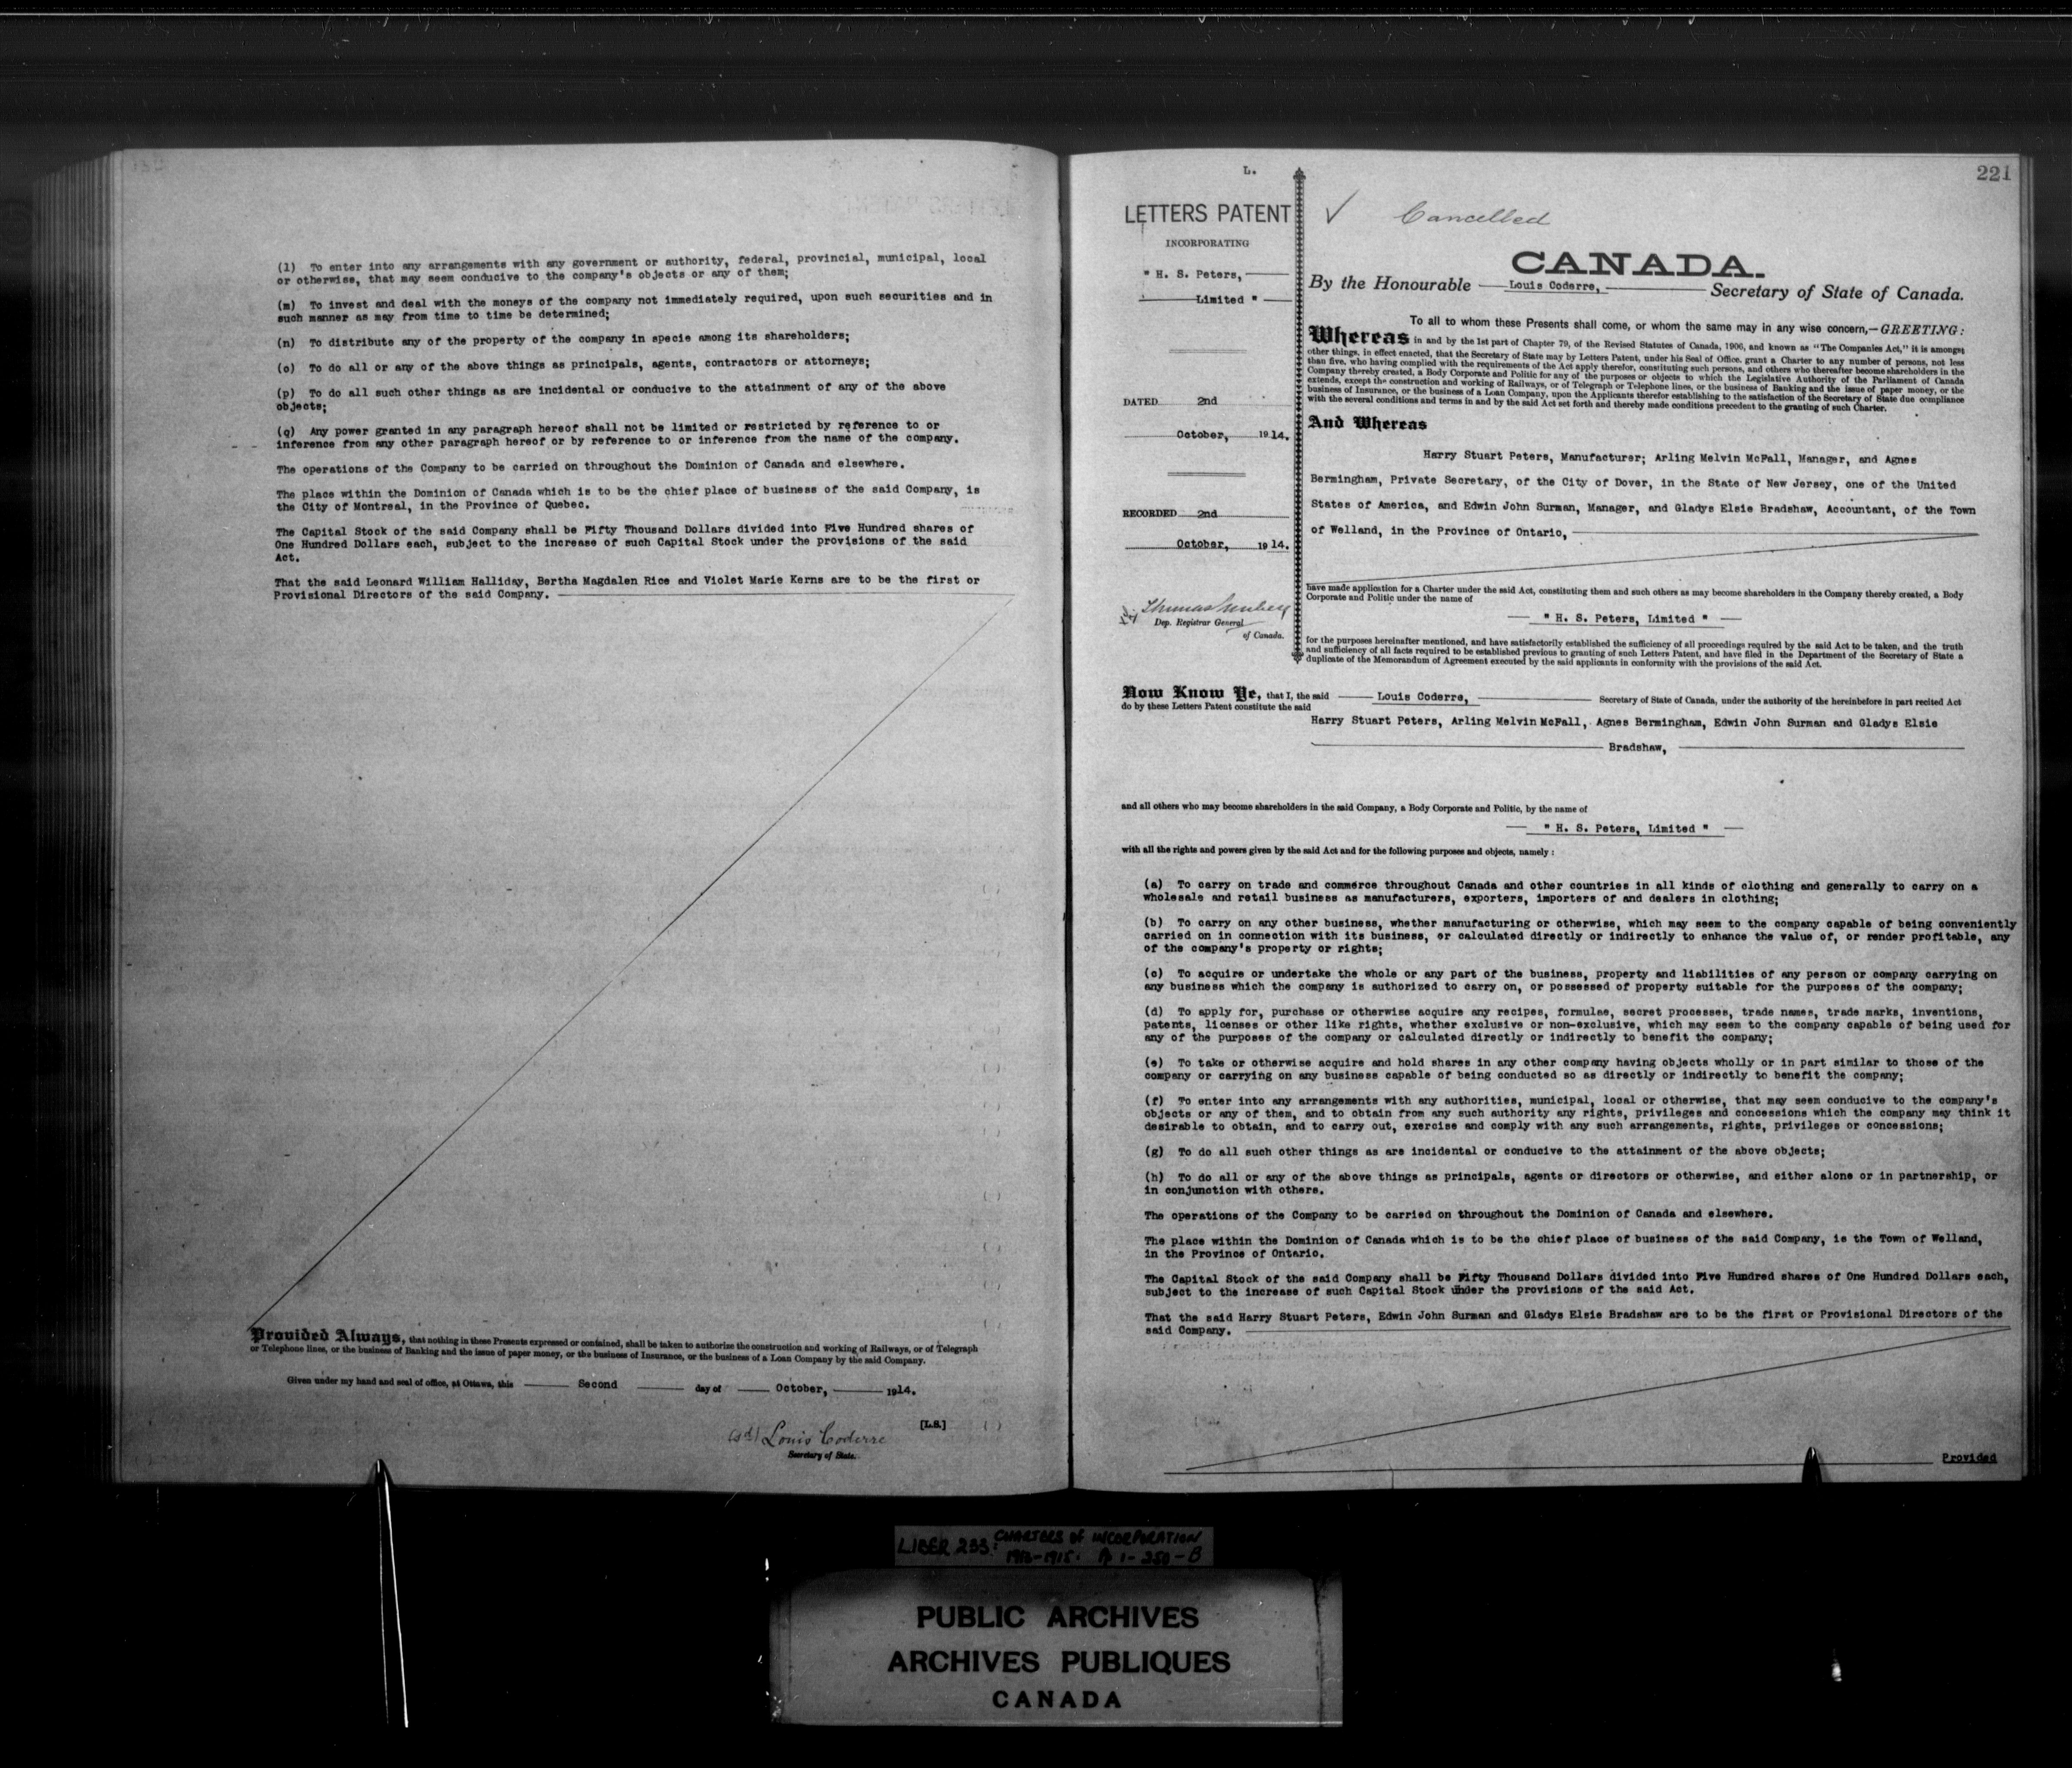 (l) To enter into any arrangements with any government or authority, federal, provincial, municipal, local
or otherwise, that may seem conducive to the company's objects or any of them;
(m) To invest and deal with the moneys of the company not immediately required, upon such securities and in
such manner as may from time to time be determined;
(n) To distribute any of the property of the company in specie among its shareholders;
(o) To do all or any of the above things as principals, agents, contractors or attorneys;
(p) To do all such other things as are incidental or conducive to the attainment of any of the above
objects;
(q) Any power granted in any paragraph hereof shall not be limited or restricted by reference to or
inference from any other paragraph hereof or by reference to or inference from the name of the company.
The operations of the Company to be carried on throughout the Dominion of Canada and elsewhere.
The place within the Dominion of Canada which is to be the chief place of business of the said Company, is
the City of Montreal, in the Province of Quebec.
The Capital Stock of the said Company shall be Fifty Thousand Dollars divided into Five Hundred shares of
One Hundred Dollars each, subject to the increase of such Capital Stock under the provisions of the said
Act.
That the said Leonard William Halliday, Bertha Magdalen Rice and Violet Marie Kerns are to be the first or
Provisional Directors of the said Company.
Provided Always, that nothing in these Presents expressed or contained, shall be taken to authorize the construction and working of Railways, or of Telegraph
or Telephone lines, or the business of Banking and the issue of paper money, or the business of Insurance, or the business of a Loan Company by the said Company.
Given under my hand and seal of office, at Ottawa, this Second day of October, 1914.
[L.S.]
(sd) Louis Coderre
Secretary of State.
221
L.
LETTERS PATENT
INCORPORATING
" H. S. Peters,
Limited "
DATED 2nd
October, 1914.
RECORDED 2nd
October, 1914.
Dep. Registrar General
of Canada.
Cancelled
CANADA.
By the Honourable Louis Coderre, Secretary of State of Canada.
To all to whom these Presents shall come, or whom the same may in any wise concern,—GREETING:
Whereas in and by the 1st part of Chapter 79, of the Revised Statutes of Canada, 1906, and known as "The Companies Act," it is amongst
other things, in effect enacted, that the Secretary of State may by Letters Patent, under his Seal of Office, grant a Charter to any number of persons, not less
than five, who having complied with the requirements of the Act apply therefor, constituting such persons, and others who thereafter become shareholders in the
Company thereby created, a Body Corporate and Politic for any of the purposes or objects to which the Legislative Authority of the Parliament of Canada
extends, except the construction and working of Railways, or of Telegraph or Telephone lines, or the business of Banking and the issue of paper money, or the
business of Insurance, or the business of a Loan Company, upon the Applicants therefor establishing to the satisfaction of the Secretary of State due compliance
with the several conditions and terms in and by the said Act set forth and thereby made conditions precedent to the granting of such Charter.
And Whereas
Harry Stuart Peters, Manufacturer; Arling Melvin McFall, Manager, and Agnes
Bermingham, Private Secretary, of the City of Dover, in the State of New Jersey, one of the United
States of America, and Edwin John Surman, Manager, and Gladys Elsie Bradshaw, Accountant, of the Town
of Welland, in the Province of Ontario,
have made application for a Charter under the said Act, constituting them and such others as may become shareholders in the Company thereby created, a Body
Corporate and Politic under the name of
" H. S. Peters, Limited "
for the purposes hereinafter mentioned, and have satisfactorily established the sufficiency of all proceedings required by the said Act to be taken, and the truth
and sufficiency of all facts required to be established previous to granting of such Letters Patent, and have filed in the Department of the Secretary of State a
duplicate of the Memorandum of Agreement executed by the said applicants in conformity with the provisions of the said Act.
Now Know Ye, that I, the said Louis Coderre, Secretary of State of Canada, under the authority of the hereinbefore in part recited Act
do by these Letters Patent constitute the said
Harry Stuart Peters, Arling Melvin McFall, Agnes Bermingham, Edwin John Surman and Gladys Elsie
Bradshaw,
and all others who may become shareholders in the said Company, a Body Corporate and Politic, by the name of
" H. S. Peters, Limited "
with all the rights and powers given by the said Act and for the following purposes and objects, namely :
(a) To carry on trade and commerce throughout Canada and other countries in all kinds of clothing and generally to carry on a
wholesale and retail business as manufacturers, exporters, importers of and dealers in clothing;
(b) To carry on any other business, whether manufacturing or otherwise, which may seem to the company capable of being conveniently
carried on in connection with its business, or calculated directly or indirectly to enhance the value of, or render profitable, any
of the company's property or rights;
(c) To acquire or undertake the whole or any part of the business, property and liabilities of any person or company carrying on
any business which the company is authorized to carry on, or possessed of property suitable for the purposes of the company;
(d) To apply for, purchase or otherwise acquire any recipes, formulae, secret processes, trade names, trade marks, inventions,
patents, licenses or other like rights, whether exclusive or non-exclusive, which may seem to the company capable of being used for
any of the purposes of the company or calculated directly or indirectly to benefit the company;
(e) To take or otherwise acquire and hold shares in any other company having objects wholly or in part similar to those of the
company or carrying on any business capable of being conducted so as directly or indirectly to benefit the company;
(f) To enter into any arrangements with any authorities, municipal, local or otherwise, that may seem conducive to the company's
objects or any of them, and to obtain from any such authority any rights, privileges and concessions which the company may think it
desirable to obtain, and to carry out, exercise and comply with any such arrangements, rights, privileges or concessions;
(g) To do all such other things as are incidental or conducive to the attainment of the above objects;
(h) To do all or any of the above things as principals, agents or directors or otherwise, and either alone or in partnership, or
in conjunction with others.
The operations of the Company to be carried on throughout the Dominion of Canada and elsewhere.
The place within the Dominion of Canada which is to be the chief place of business of the said Company, is the Town of Welland,
in the Province of Ontario.
The Capital Stock of the said Company shall be Fifty Thousand Dollars divided into Five Hundred shares of One Hundred Dollars each,
subject to the increase of such Capital Stock under the provisions of the said Act.
That the said Harry Stuart Peters, Edwin John Surman and Gladys Elsie Bradshaw are to be the first or Provisional Directors of the
said Company.
Provided
LIBER 233: CHARTERS OF INCORPORATION
PUBLIC ARCHIVES
ARCHIVES PUBLIQUES
CANADA